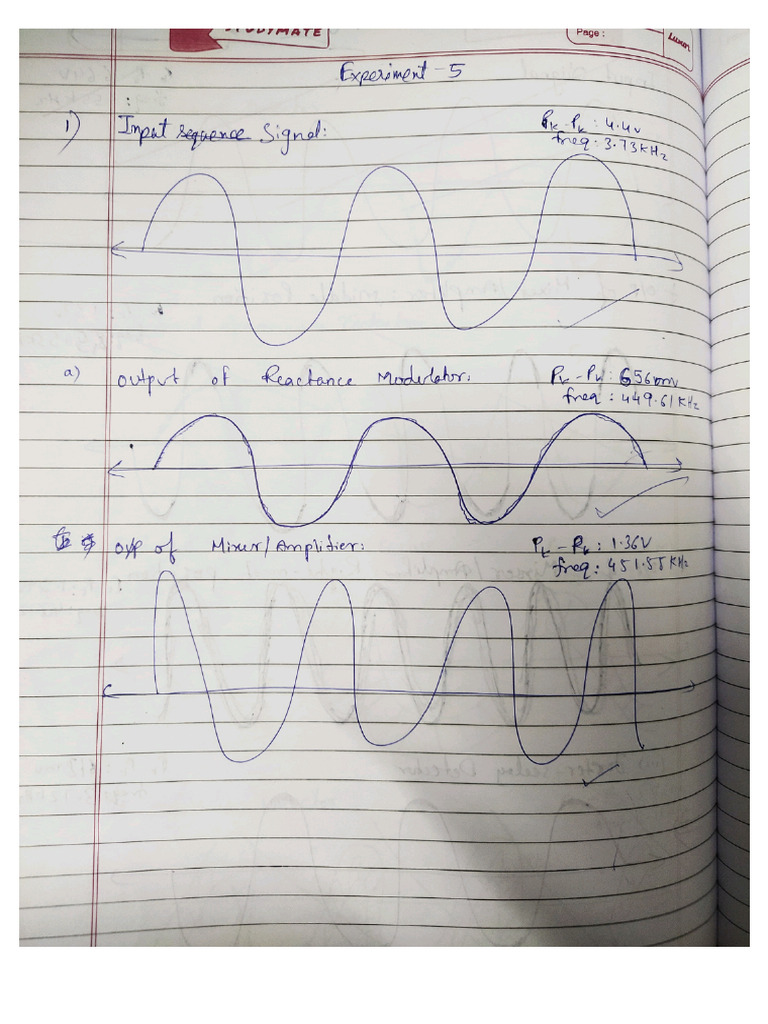 STUDYMATE
Page :
Luxor
Experiment - 5
1) Input sequence Signal:
Pk - Pk : 4.4v
freq : 3.73KHz
a) output of Reactance Modulator:
Pk - Pk : 656mv
freq : 449.61KHz
o/p of Mixer/Amplifier:
Pk - Pk : 1.36V
freq : 451.55KHz